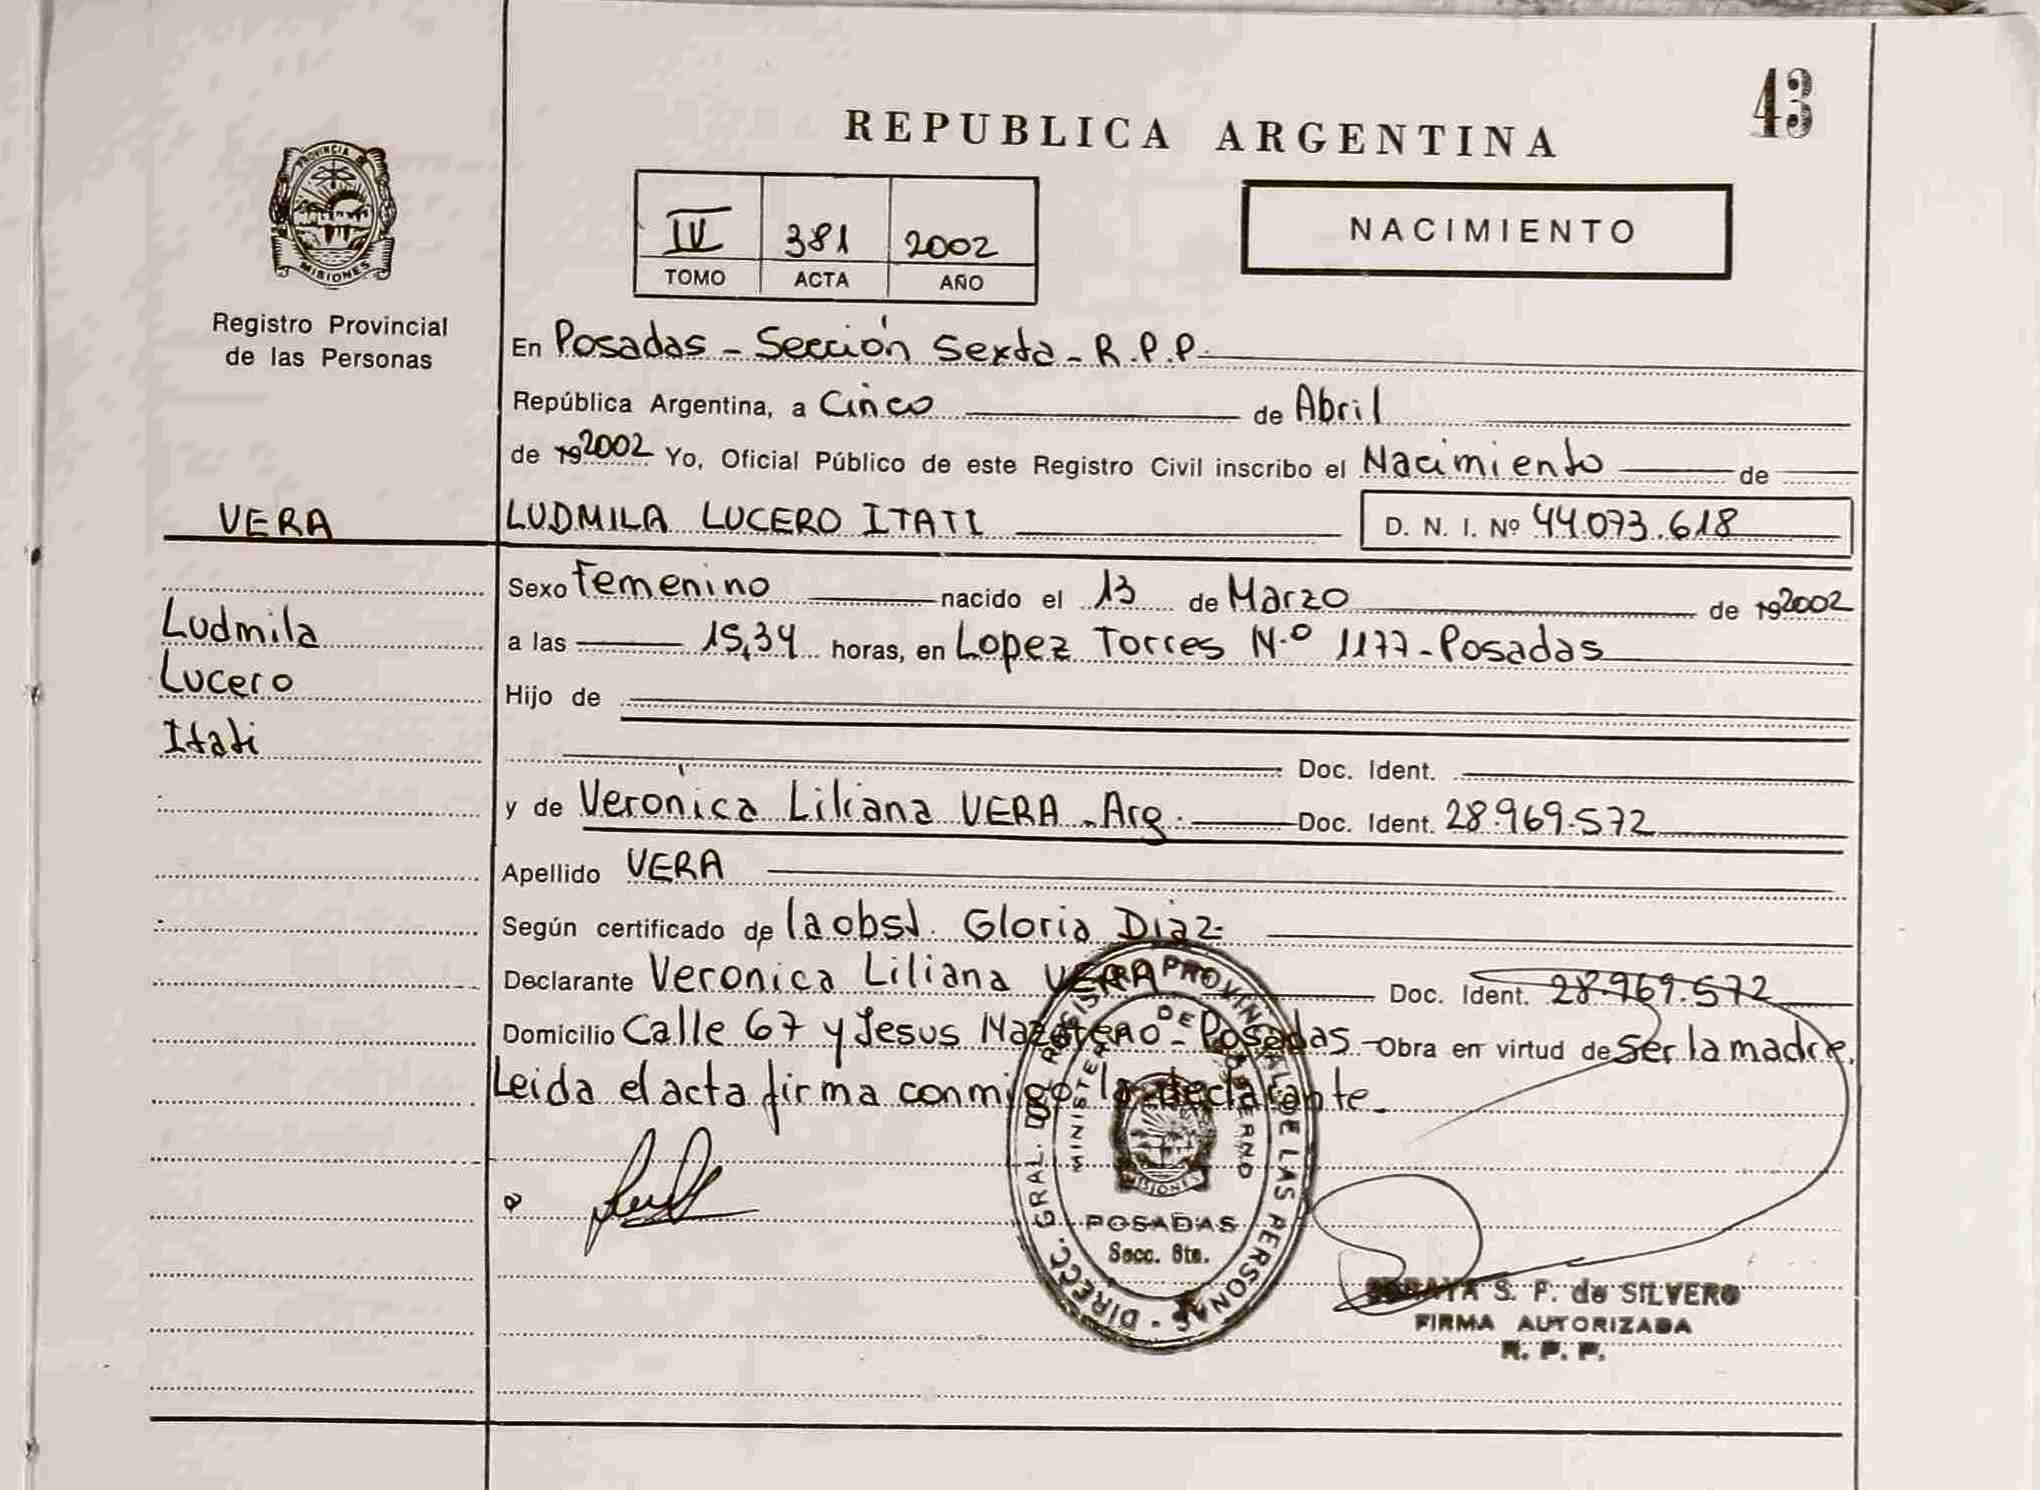 43
REPUBLICA ARGENTINA
PROVINCIA DE
MISIONES
Registro Provincial
de las Personas
IV 381 2002
TOMO ACTA AÑO
NACIMIENTO
En Posadas - Sección Sexta - R.P.P.
República Argentina, a Cinco de Abril
de 192002 Yo, Oficial Público de este Registro Civil inscribo el Nacimiento de
VERA LUDMILA LUCERO ITATI D. N. I. Nº 44.073.618
Sexo Femenino nacido el 13 de Marzo de 192002
Ludmila
a las 15,34 horas, en Lopez Torres N.º 1177-Posadas
Lucero
Hijo de
Itati
Doc. Ident.
y de Verónica Liliana VERA - Arg. Doc. Ident. 28.969.572
Apellido VERA
Según certificado de la obst. Gloria Diaz.
Declarante Veronica Liliana VERA Doc. Ident. 28.969.572
Domicilio Calle 67 y Jesus Nazareno - Posadas - Obra en virtud de ser la madre.
Leida el acta firma conmigo la declarante.
DIRECC. GRAL. DEL REGISTRO PROVINCIAL DE LAS PERSONAS
MINISTERIO DE GOBIERNO
MISIONES
POSADAS
Secc. 6ta.
S. P. de SILVERO
FIRMA AUTORIZADA
R. P. P.